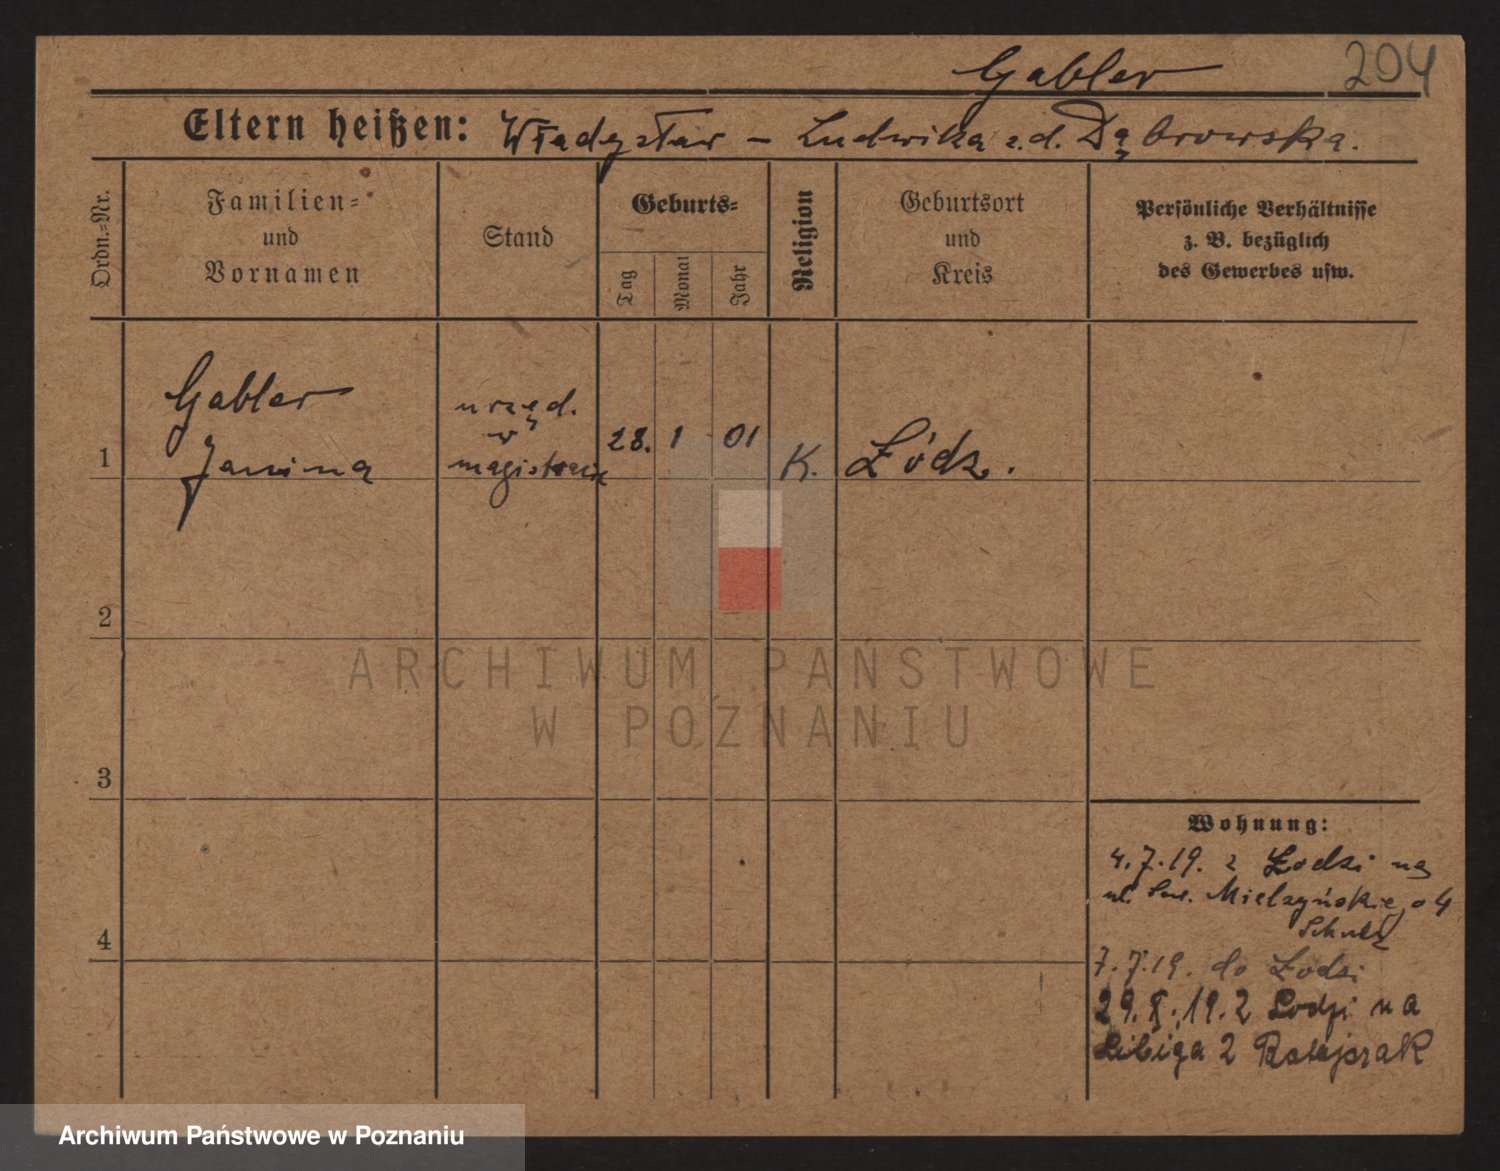 Gabler 204
Eltern heißen: Władysław – Ludwika z.d. Dąbrowska.
Ordn.=Nr.
Familien=
und
Vornamen
Stand
Geburts=
Tag
Monat
Jahr
Religion
Geburtsort
und
Kreis
Persönliche Verhältnisse
z. B. bezüglich
des Gewerbes usw.
1
Gabler
Janina
urzęd.
w
magistracie
28. 1 01
K.
Łódz.
2
3
4
Wohnung:
4.7.19. z Łodzi na
ul. Sew. Mielzyńskiego 4
7.7.19. do Łodzi
29.X.19. z Lodzi na
Libiga 2 Ratajczak
ARCHIWUM PAŃSTWOWE
W POZNANIU
Archiwum Państwowe w Poznaniu